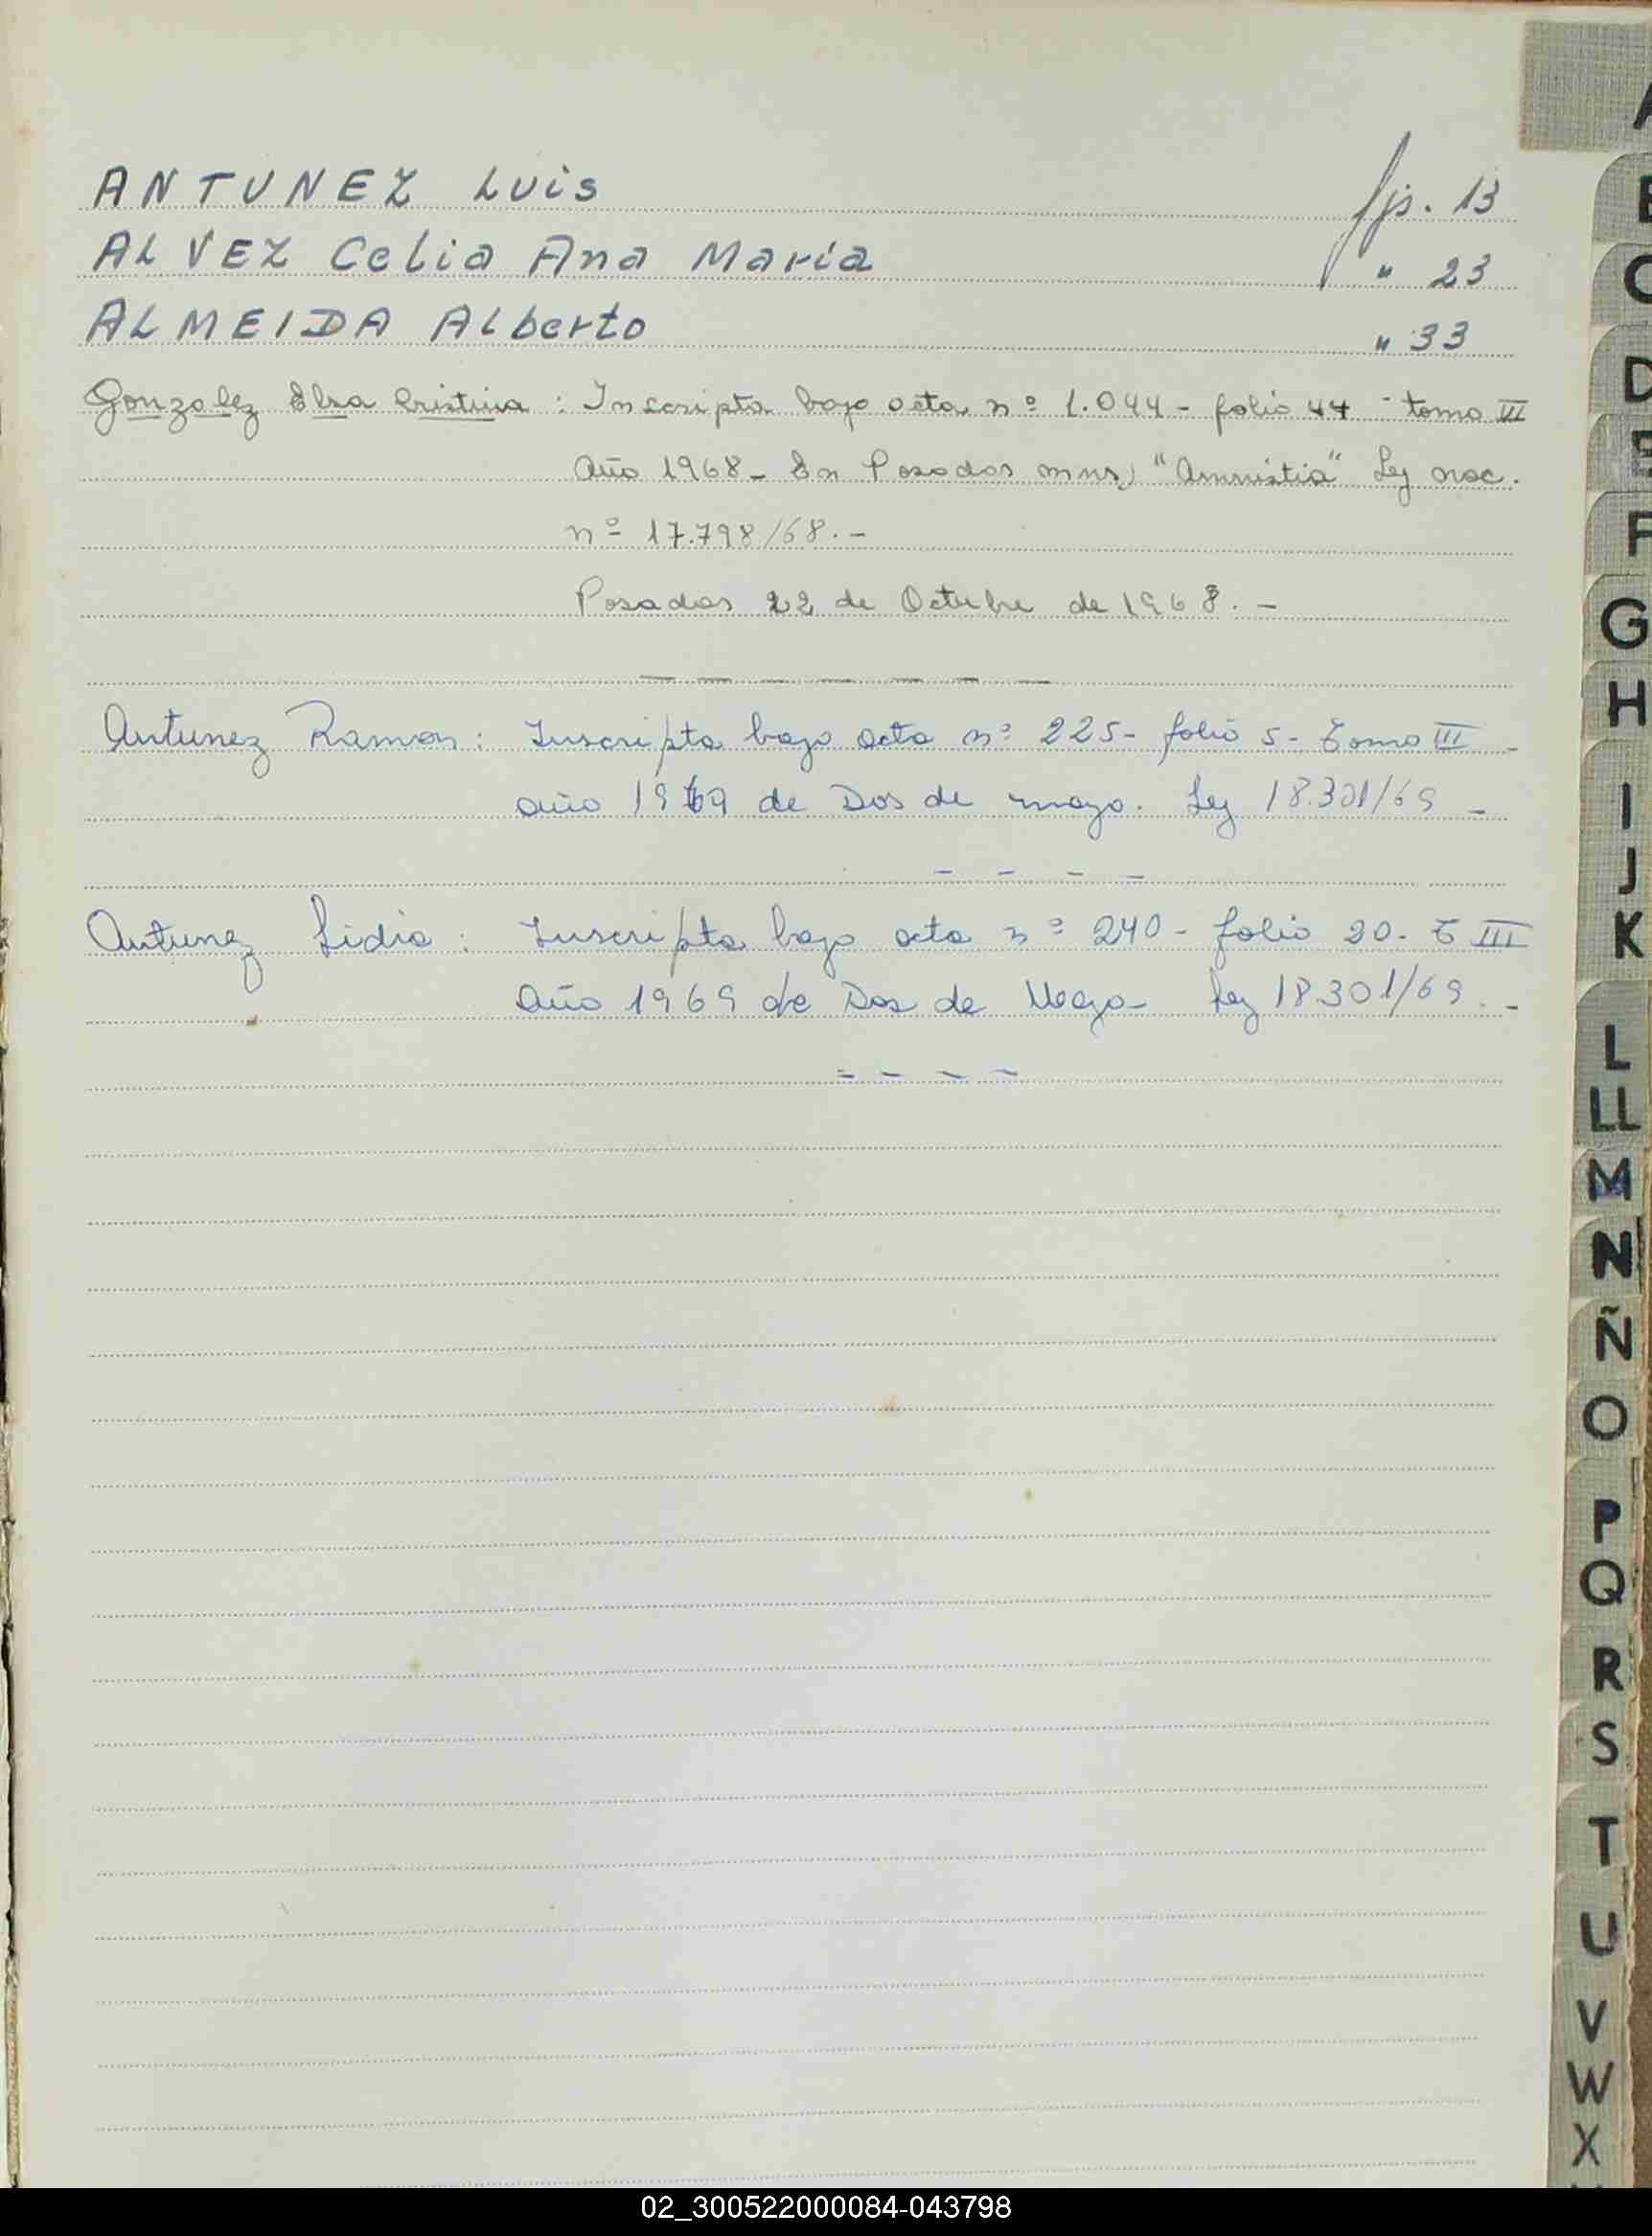 ANTUNEZ Luis fjs. 13
ALVEZ Celia Ana María " 23
ALMEIDA Alberto " 33
Gonzalez Elsa Cristina : Inscripta bajo acta nº 1.044 - folio 44 - tomo III
Año 1968 - En Posadas mns, "Amnistia" Ley nac.
nº 17.798/68. -
Posadas 22 de Octubre de 1968. -
Antunez Ramon : Inscripta bajo acta nº 225 - folio 5 - Tomo III -
año 1969 de Dos de mayo. Ley 18.301/69 -
Antunez Lidia : Inscripta bajo acta nº 240 - folio 20 - T III
Año 1969 de Dos de Mayo - Ley 18301/69. -
A
B
C
D
E
F
G
H
I
J
K
L
LL
M
N
Ñ
O
P
Q
R
S
T
U
V
W
X
02_300522000084-043798